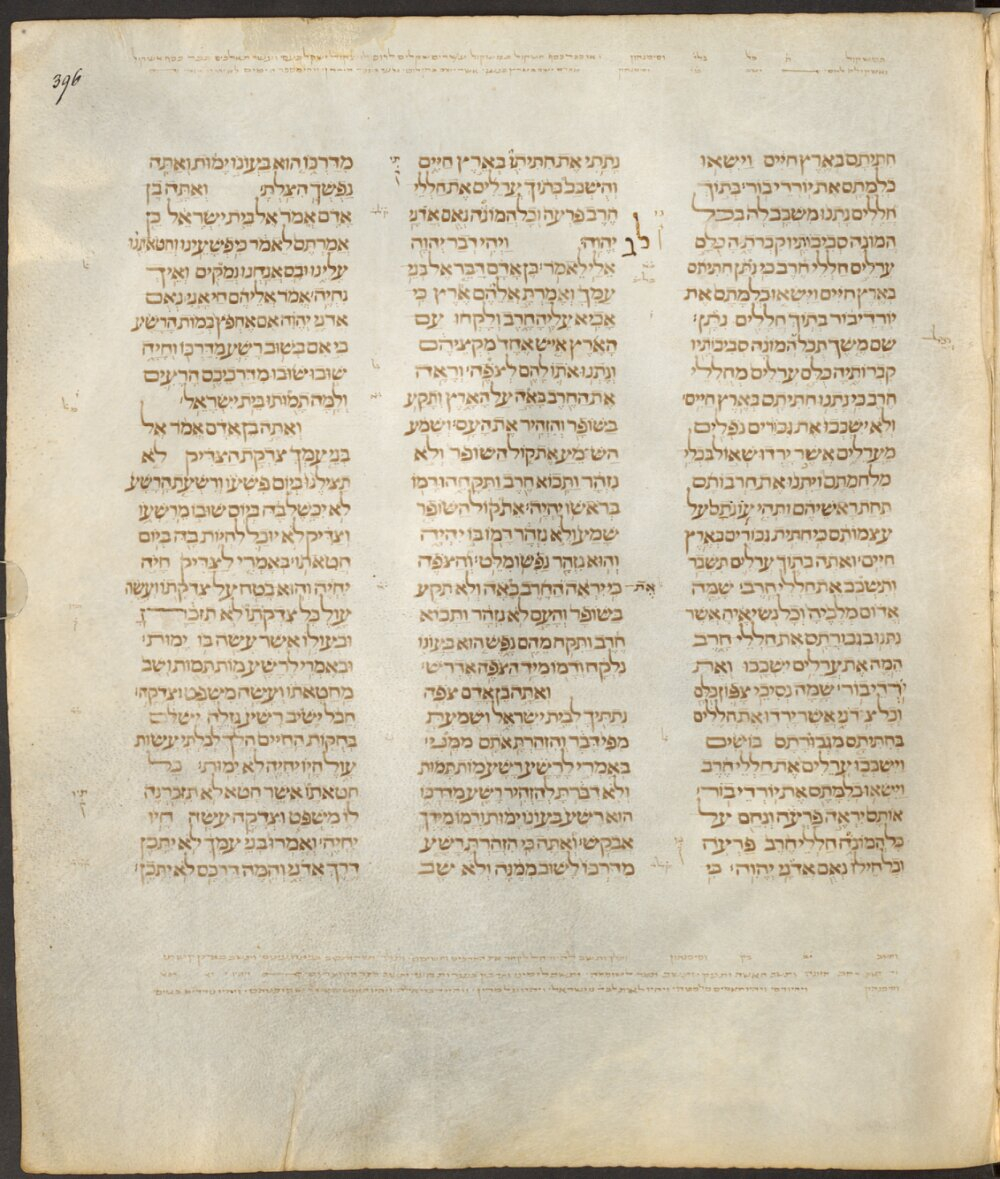 396
חתיתם בארץ חיים וישאו
כלמתם את יורדי בור׃ בתוך
חללים נתנו משכב לה בכל
המונה סביבותיו קברתה כלם
ערלים חללי חרב כי נתן חתיתם
בארץ חיים וישאו כלמתם את
יורדי בור בתוך חללים נתן׃
שם משך תבל וכל המונה סביבותיו
קברותיה כלם ערלים מחללי
חרב כי נתנו חתיתם בארץ חיים׃
ולא ישכבו את גבורים נפלים
מערלים אשר ירדו שאול בכלי
מלחמתם ויתנו את חרבותם
תחת ראשיהם ותהי עונתם על
עצמותם כי חתית גבורים בארץ
חיים׃ ואתה בתוך ערלים תשבר
ותשכב את חללי חרב׃ שמה
אדום מלכיה וכל נשיאיה אשר
נתנו בגבורתם את חללי חרב
המה את ערלים ישכבו ואת
ירדי בור׃ שמה נסיכי צפון כלם
וכל צדני אשר ירדו את חללים
בחתיתם מגבורתם בושים
וישכבו ערלים את חללי חרב
וישאו כלמתם את יורדי בור׃
אותם יראה פרעה ונחם על
כל המונה חללי חרב פרעה
וכל חילו נאם אדני יהוה׃ כי
נתתי את חתיתו בארץ חיים
והשכב בתוך ערלים את חללי
חרב פרעה וכל המונה נאם אדני
יהוה׃ ויהי דבר יהוה
לב
אלי לאמר׃ בן אדם דבר אל בני
עמך ואמרת אליהם ארץ כי
אביא עליה חרב ולקחו עם
הארץ איש אחד מקציהם
ונתנו אתו להם לצפה׃ וראה
את החרב באה על הארץ ותקע
בשופר והזהיר את העם׃ ושמע
השמע את קול השופר ולא
נזהר ותבוא חרב ותקחהו דמו
בראשו יהיה׃ את קול השופר
שמע ולא נזהר דמו בו יהיה
והוא נזהר נפשו מלט׃ והצפה
כי יראה את החרב באה ולא תקע
בשופר והעם לא נזהר ותבוא
חרב ותקח מהם נפש הוא בעונו
נלקח ודמו מיד הצפה אדרש׃
ואתה בן אדם צפה
נתתיך לבית ישראל ושמעת
מפי דבר והזהרת אתם ממני׃
באמרי לרשע רשע מות תמות
ולא דברת להזהיר רשע מדרכו
הוא רשע בעונו ימות ודמו מידך
אבקש׃ ואתה כי הזהרת רשע
מדרכו לשוב ממנה ולא שב
מדרכו הוא בעונו ימות ואתה
נפשך הצלת׃ ואתה בן
אדם אמר אל בית ישראל כן
אמרתם לאמר כי פשעינו וחטאתנו
עלינו ובם אנחנו נמקים ואיך
נחיה׃ אמר אליהם חי אני נאם
אדני יהוה אם אחפץ במות הרשע
כי אם בשוב רשע מדרכו וחיה
שובו שובו מדרכיכם הרעים
ולמה תמותו בית ישראל׃
ואתה בן אדם אמר אל
בני עמך צדקת הצדיק לא
תצילנו ביום פשעו ורשעת הרשע
לא יכשל בה ביום שובו מרשעו
וצדיק לא יוכל לחיות בה ביום
חטאתו׃ באמרי לצדיק חיה
יחיה והוא בטח על צדקתו ועשה
עול כל צדקתו לא תזכרן
ובעולו אשר עשה בו ימות׃
ובאמרי לרשע מות תמות ושב
מחטאתו ועשה משפט וצדקה׃
חבל ישיב רשע גזלה ישלם
בחקות החיים הלך לבלתי עשות
עול חיו יחיה לא ימות׃ כל
חטאתו אשר חטא לא תזכרנה
לו משפט וצדקה עשה חיו
יחיה׃ ואמרו בני עמך לא יתכן
דרך אדני והמה דרכם לא יתכן׃